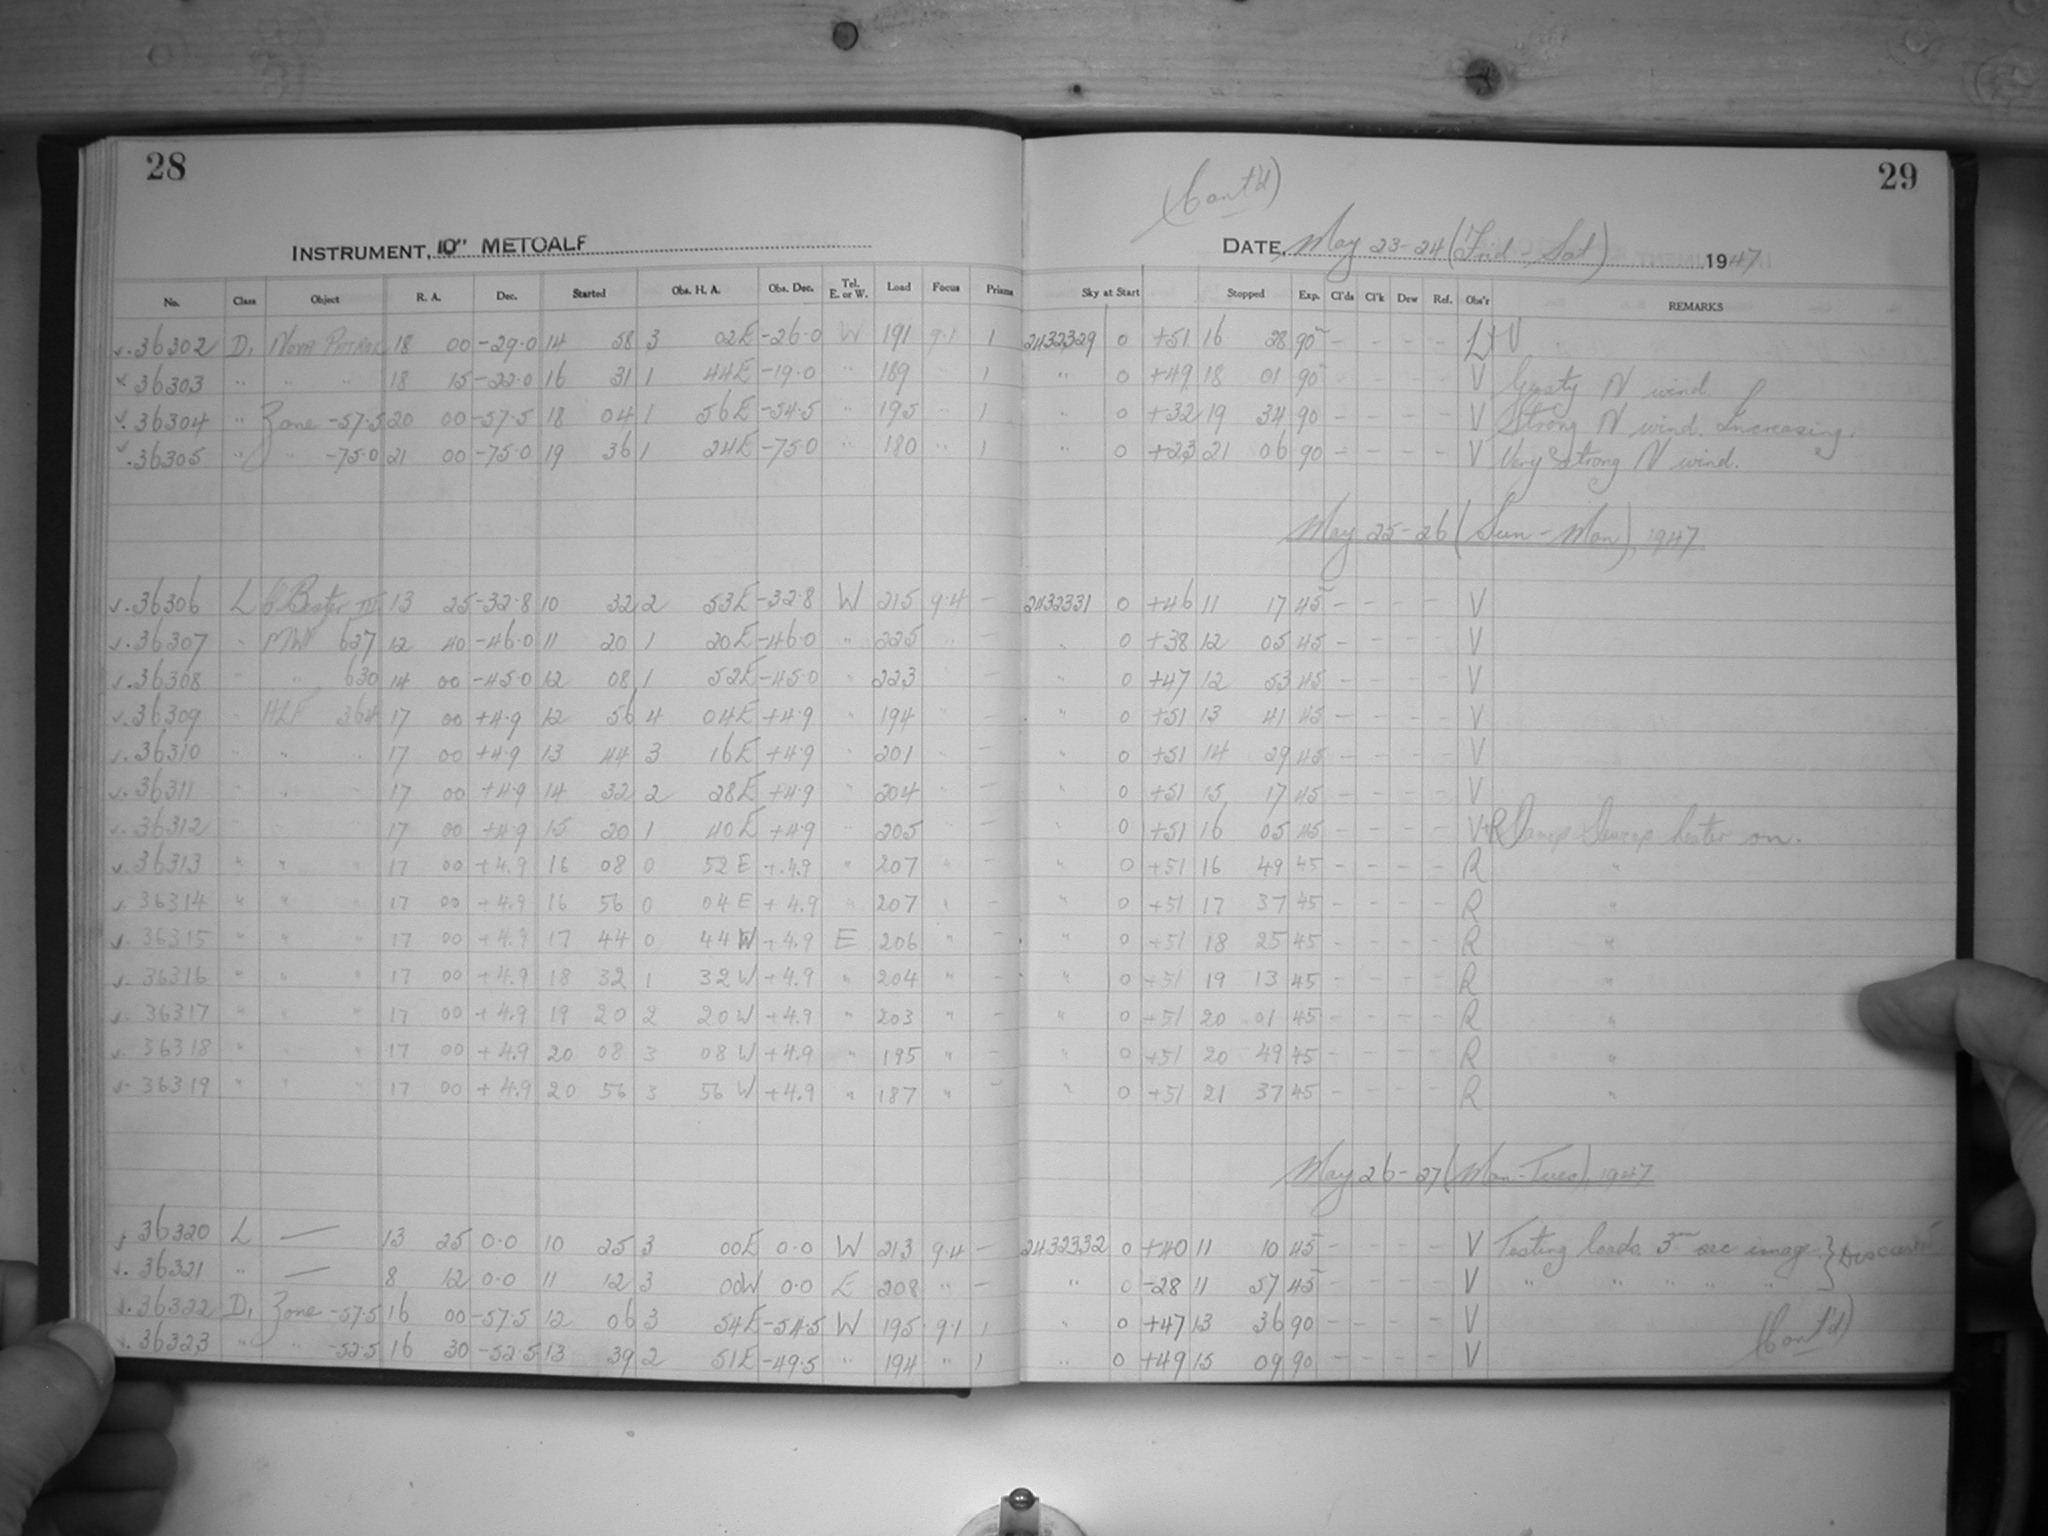 28
29
(Cont'd)
INSTRUMENT, 10" METCALF
DATE, May 23-24 (Frid - Sat) 1947
No. Class Object R. A. Dec. Started Obs. H. A. Obs. Dec. Tel. E. or W. Load Focus Prisms Sky at Start Stopped Exp. Cl'ds Cl'k Dew Ref. Obs'r REMARKS
36302 D, NOVA PATROL 18 00 -29.0 14 58 3 02E -26.0 W 191 9.1 1 2432329 0 +51 16 28 90 - - - - L+V
36303 " " " 18 15 -22.0 16 31 1 44E -19.0 " 189 1 " 0 +49 18 01 90 - - - - V Gusty N wind
36304 " Zone -57.5 20 00 -57.5 18 04 1 56E -54.5 " 195 " 1 " 0 +32 19 34 90 - - - - V Strong N wind. Increasing.
36305 " " -75.0 21 00 -75.0 19 36 1 24E -75.0 " 180 " 1 " 0 +23 21 06 90 - - - - V Very strong N wind.
May 25-26 (Sun - Mon), 1947
36306 L C Bester III 13 25 -32.8 10 32 2 53E -32.8 W 215 9.4 - 2432331 0 +46 11 17 45 - - - - V
36307 " MWF 627 12 40 -46.0 11 20 1 20E -46.0 " 225 " - " 0 +38 12 05 45 - - - - V
36308 " " 630 14 00 -45.0 12 08 1 52E -45.0 " 223 - " 0 +47 12 53 45 - - - - V
36309 " HLF 364 17 00 +4.9 12 56 4 04E +4.9 " 194 " - " 0 +51 13 41 45 - - - - V
36310 " " " 17 00 +4.9 13 44 3 16E +4.9 " 201 " - " 0 +51 14 29 45 - - - - V
36311 " " " 17 00 +4.9 14 32 2 28E +4.9 " 204 " - " 0 +51 15 17 45 - - - - V
36312 " " " 17 00 +4.9 15 20 1 40E +4.9 " 205 " - " 0 +51 16 05 45 - - - - V+R Damp heater on.
36313 " " " 17 00 +4.9 16 08 0 52E +4.9 " 207 " - " 0 +51 16 49 45 - - - - R "
36314 " " " 17 00 +4.9 16 56 0 04E +4.9 " 207 " - " 0 +51 17 37 45 - - - - R "
36315 " " " 17 00 +4.9 17 44 0 44W +4.9 E 206 " - " 0 +51 18 25 45 - - - - R "
36316 " " " 17 00 +4.9 18 32 1 32W +4.9 " 204 " - " 0 +51 19 13 45 - - - - R "
36317 " " " 17 00 +4.9 19 20 2 20W +4.9 " 203 " - " 0 +51 20 01 45 - - - - R "
36318 " " " 17 00 +4.9 20 08 3 08W +4.9 " 195 " - " 0 +51 20 49 45 - - - - R "
36319 " " " 17 00 +4.9 20 56 3 56W +4.9 " 187 " - " 0 +51 21 37 45 - - - - R "
May 26-27 (Mon-Tues), 1947
36320 L — 13 25 0.0 10 25 3 00E 0.0 W 213 9.4 - 2432332 0 +40 11 10 45 - - - - V Testing loads. 3 sec image }
36321 " — 8 12 0.0 11 12 3 00W 0.0 E 208 " - " 0 -28 11 57 45 - - - - V " " " " "
36322 D, Zone -57.5 16 00 -57.5 12 06 3 54E -54.5 W 195 9.1 1 " 0 +47 13 36 90 - - - - V
36323 " " -52.5 16 30 -52.5 13 39 2 51E -49.5 " 194 " 1 " 0 +49 15 09 90 - - - - V
(Cont'd)